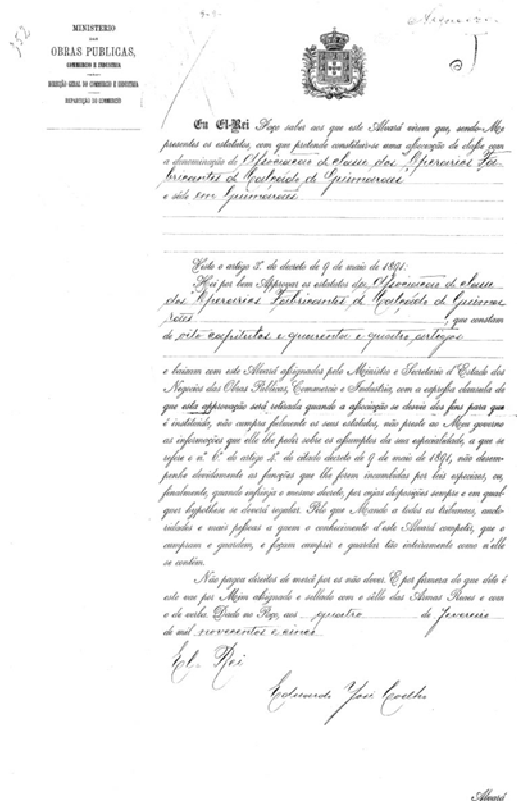 352
MINISTERIO
DAS
OBRAS PUBLICAS,
COMMERCIO E INDUSTRIA
DIRECÇÃO GERAL DO COMMERCIO E INDUSTRIA
REPARTIÇÃO DO COMMERCIO
Eu El-Rei Faço saber aos que este Alvará virem que, sendo-Me
presentes os estatutos, com que pretende constituir-se uma associação de classe com
a denominação de Associação de Classe dos Operarios Fa-
bricantes de Calçado de Guimarães
e séde em Guimarães
Visto o artigo 7.º do decreto de 9 de maio de 1891:
Hei por bem Approvar os estatutos da Associação de Classe
dos Operarios Fabricantes de Calçado de Guima-
rães, que constam
de oito capitulos e quarenta e quatro artigos
e baixam com este Alvará assignados pelo Ministro e Secretario d'Estado dos
Negocios das Obras Publicas, Commercio e Industria, com a expressa clausula de
que esta approvação será retirada quando a associação se desvie dos fins para que
é instituida, não cumpra fielmente os seus estatutos, não preste ao Meu governo
as informações que elle lhe pedir sobre os assumptos da sua especialidade, a que se
refere o n.º 6.º do artigo 4.º do citado decreto de 9 de maio de 1891, não desem-
penhe devidamente as funcções que lhe forem incumbidas por leis especiaes, ou,
finalmente, quando infrinja o mesmo decreto, por cujas disposições sempre e em qual-
quer hypothese se deverá regular. Pelo que Mando a todos os tribunaes, aucto-
ridades e mais pessoas a quem o conhecimento d'este Alvará competir, que o
cumpram e guardem, e façam cumprir e guardar tão inteiramente como n'elle
se contém.
Não pagou direitos de mercê por os não dever. E por firmeza do que dito é
este vae por Mim assignado e sellado com o sêllo das Armas Reaes e com
o de verba. Dado no Paço, aos quatro de fevereiro
de mil novecentos e cinco
El-Rei
Eduardo José Coelho
Alvará